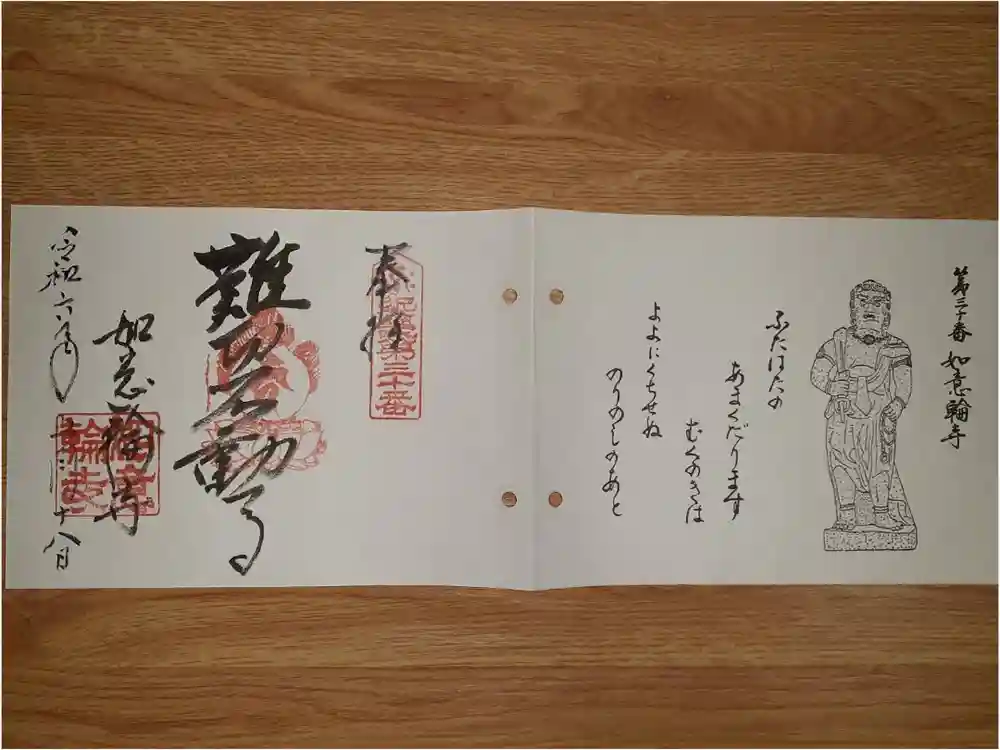 第三十番 如意輪寺
ふたはたの
あまくだります
むくのきは
よよにくちせぬ
のりのしのあと
奉拝
第三十番
難切不動尊
如意輪寺
令和六年
十八日